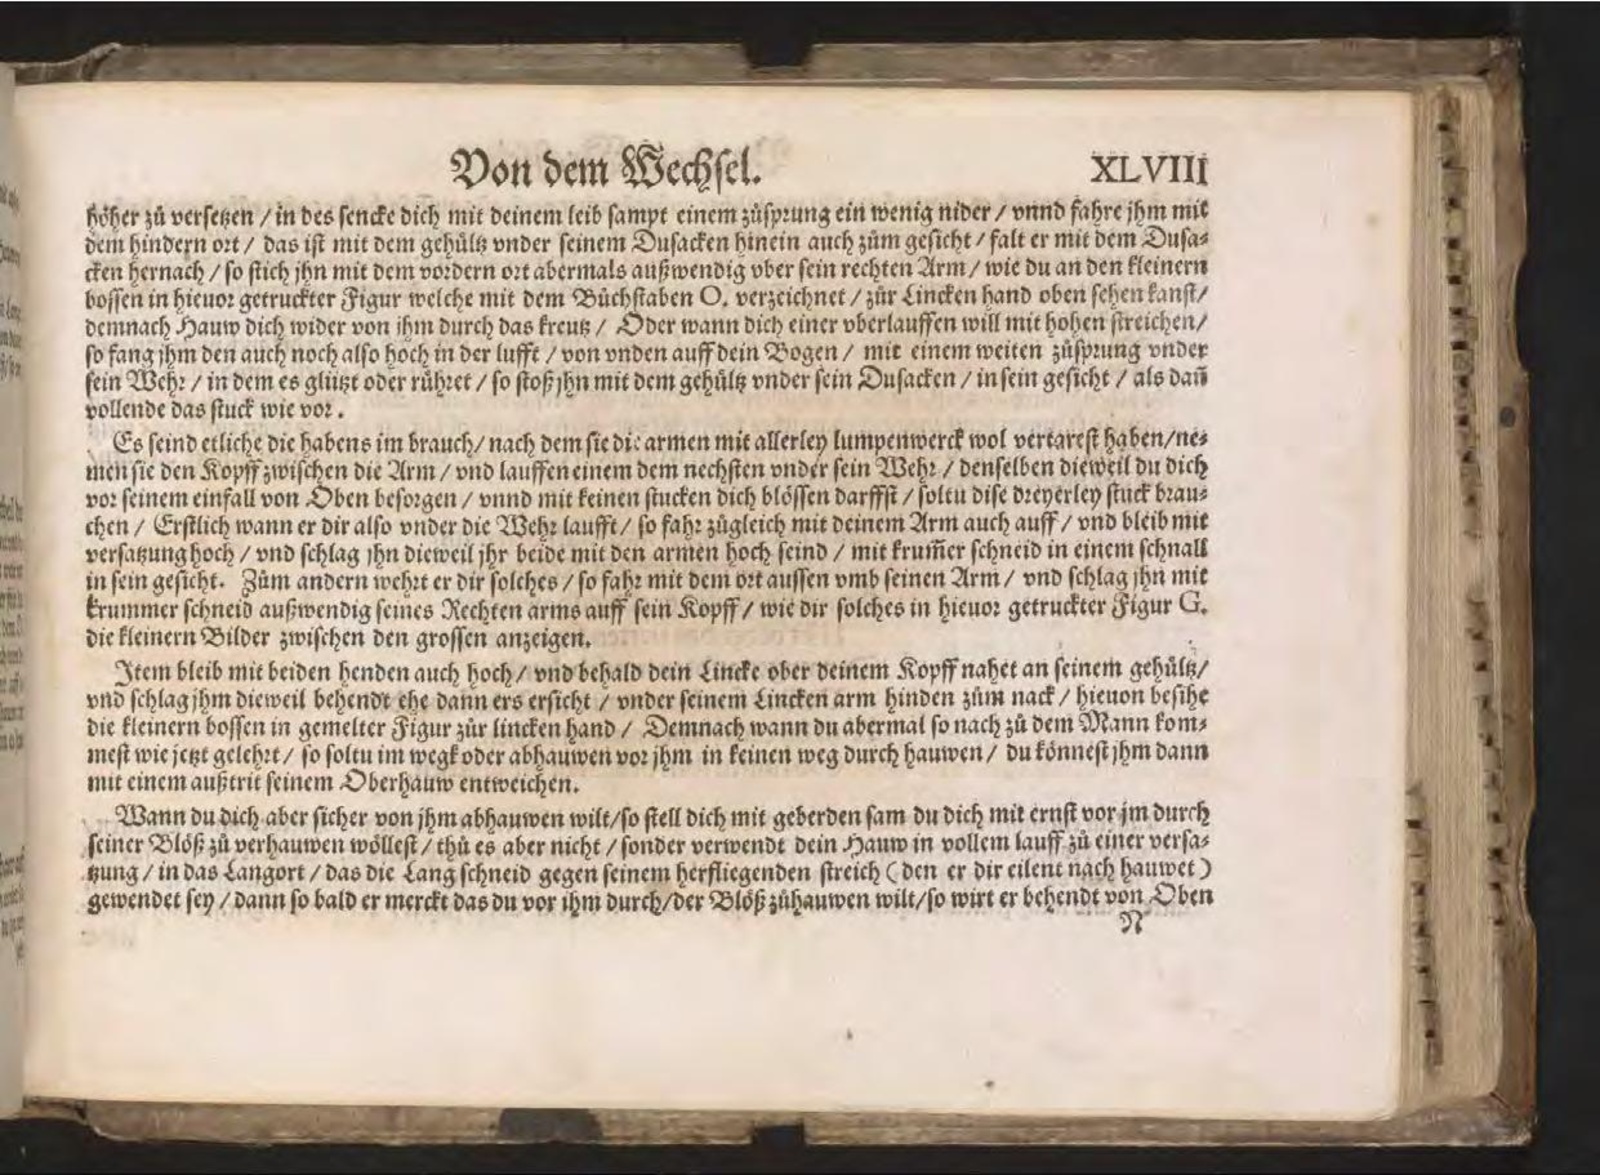 Von dem Wechsel. XLVIII
höher zů versetzen / in des sencke dich mit deinem leib sampt einem zůsprung ein wenig nider / vnnd fahre jhm mit
dem hindern ort / das ist mit dem gehültz vnder seinem Dusacken hinein auch zům gesicht / falt er mit dem Dusa⸗
cken hernach / so stich jhn mit dem vordern ort abermals außwendig vber sein rechten Arm / wie du an den kleinern
bossen in hieuor getruckter Figur welche mit dem Bůchstaben O. verzeichnet / zůr Lincken hand oben sehen kanst /
demnach Hauw dich wider von jhm durch das kreutz / Oder wann dich einer vberlauffen will mit hohen streichen /
so fang jhm den auch noch also hoch in der lufft / von vnden auff dein Bogen / mit einem weiten zůsprung vnder
sein Wehr / in dem es glützt oder rühret / so stoß jhn mit dem gehültz vnder sein Dusacken / in sein gesicht / als dañ
vollende das stuck wie vor.
Es seind etliche die habens im brauch / nach dem sie die armen mit allerley lumpenwerck wol vertarest haben / ne⸗
men sie den Kopff zwischen die Arm / vnd lauffen einem dem nechsten vnder sein Wehr / denselben dieweil du dich
vor seinem einfall von Oben besorgen / vnnd mit keinen stucken dich blössen darffst / soltu dise dreyerley stuck brau⸗
chen / Erstlich wann er dir also vnder die Wehr laufft / so fahr zůgleich mit deinem Arm auch auff / vnd bleib mit
versatzung hoch / vnd schlag jhn dieweil jhr beide mit den armen hoch seind / mit krum̃er schneid in einem schnall
in sein gesicht. Zům andern wehrt er dir solches / so fahr mit dem ort aussen vmb seinen Arm / vnd schlag jhn mit
krummer schneid außwendig seines Rechten arms auff sein Kopff / wie dir solches in hieuor getruckter Figur G.
die kleinern Bilder zwischen den grossen anzeigen.
Item bleib mit beiden henden auch hoch / vnd behald dein Lincke ober deinem Kopff nahet an seinem gehültz /
vnd schlag jhm dieweil behendt ehe dann ers ersicht / vnder seinem Lincken arm hinden zům nack / hieuon besihe
die kleinern bossen in gemelter Figur zůr lincken hand / Demnach wann du abermal so nach zů dem Mann kom⸗
mest wie jetzt gelehrt / so soltu im wegk oder abhauwen vor jhm in keinen weg durch hauwen / du könnest jhm dann
mit einem außtrit seinem Oberhauw entweichen.
Wann du dich aber sicher von jhm abhauwen wilt / so stell dich mit geberden sam du dich mit ernst vor jm durch
seiner Blöß zů verhauwen wöllest / thů es aber nicht / sonder verwendt dein Hauw in vollem lauff zů einer versa⸗
tzung / in das Langort / das die Lang schneid gegen seinem herfliegenden streich (den er dir eilent nach hauwet)
gewendet sey / dann so bald er merckt das du vor ihm durch / der Blöß zůhauwen wilt / so wirt er behendt von Oben
N